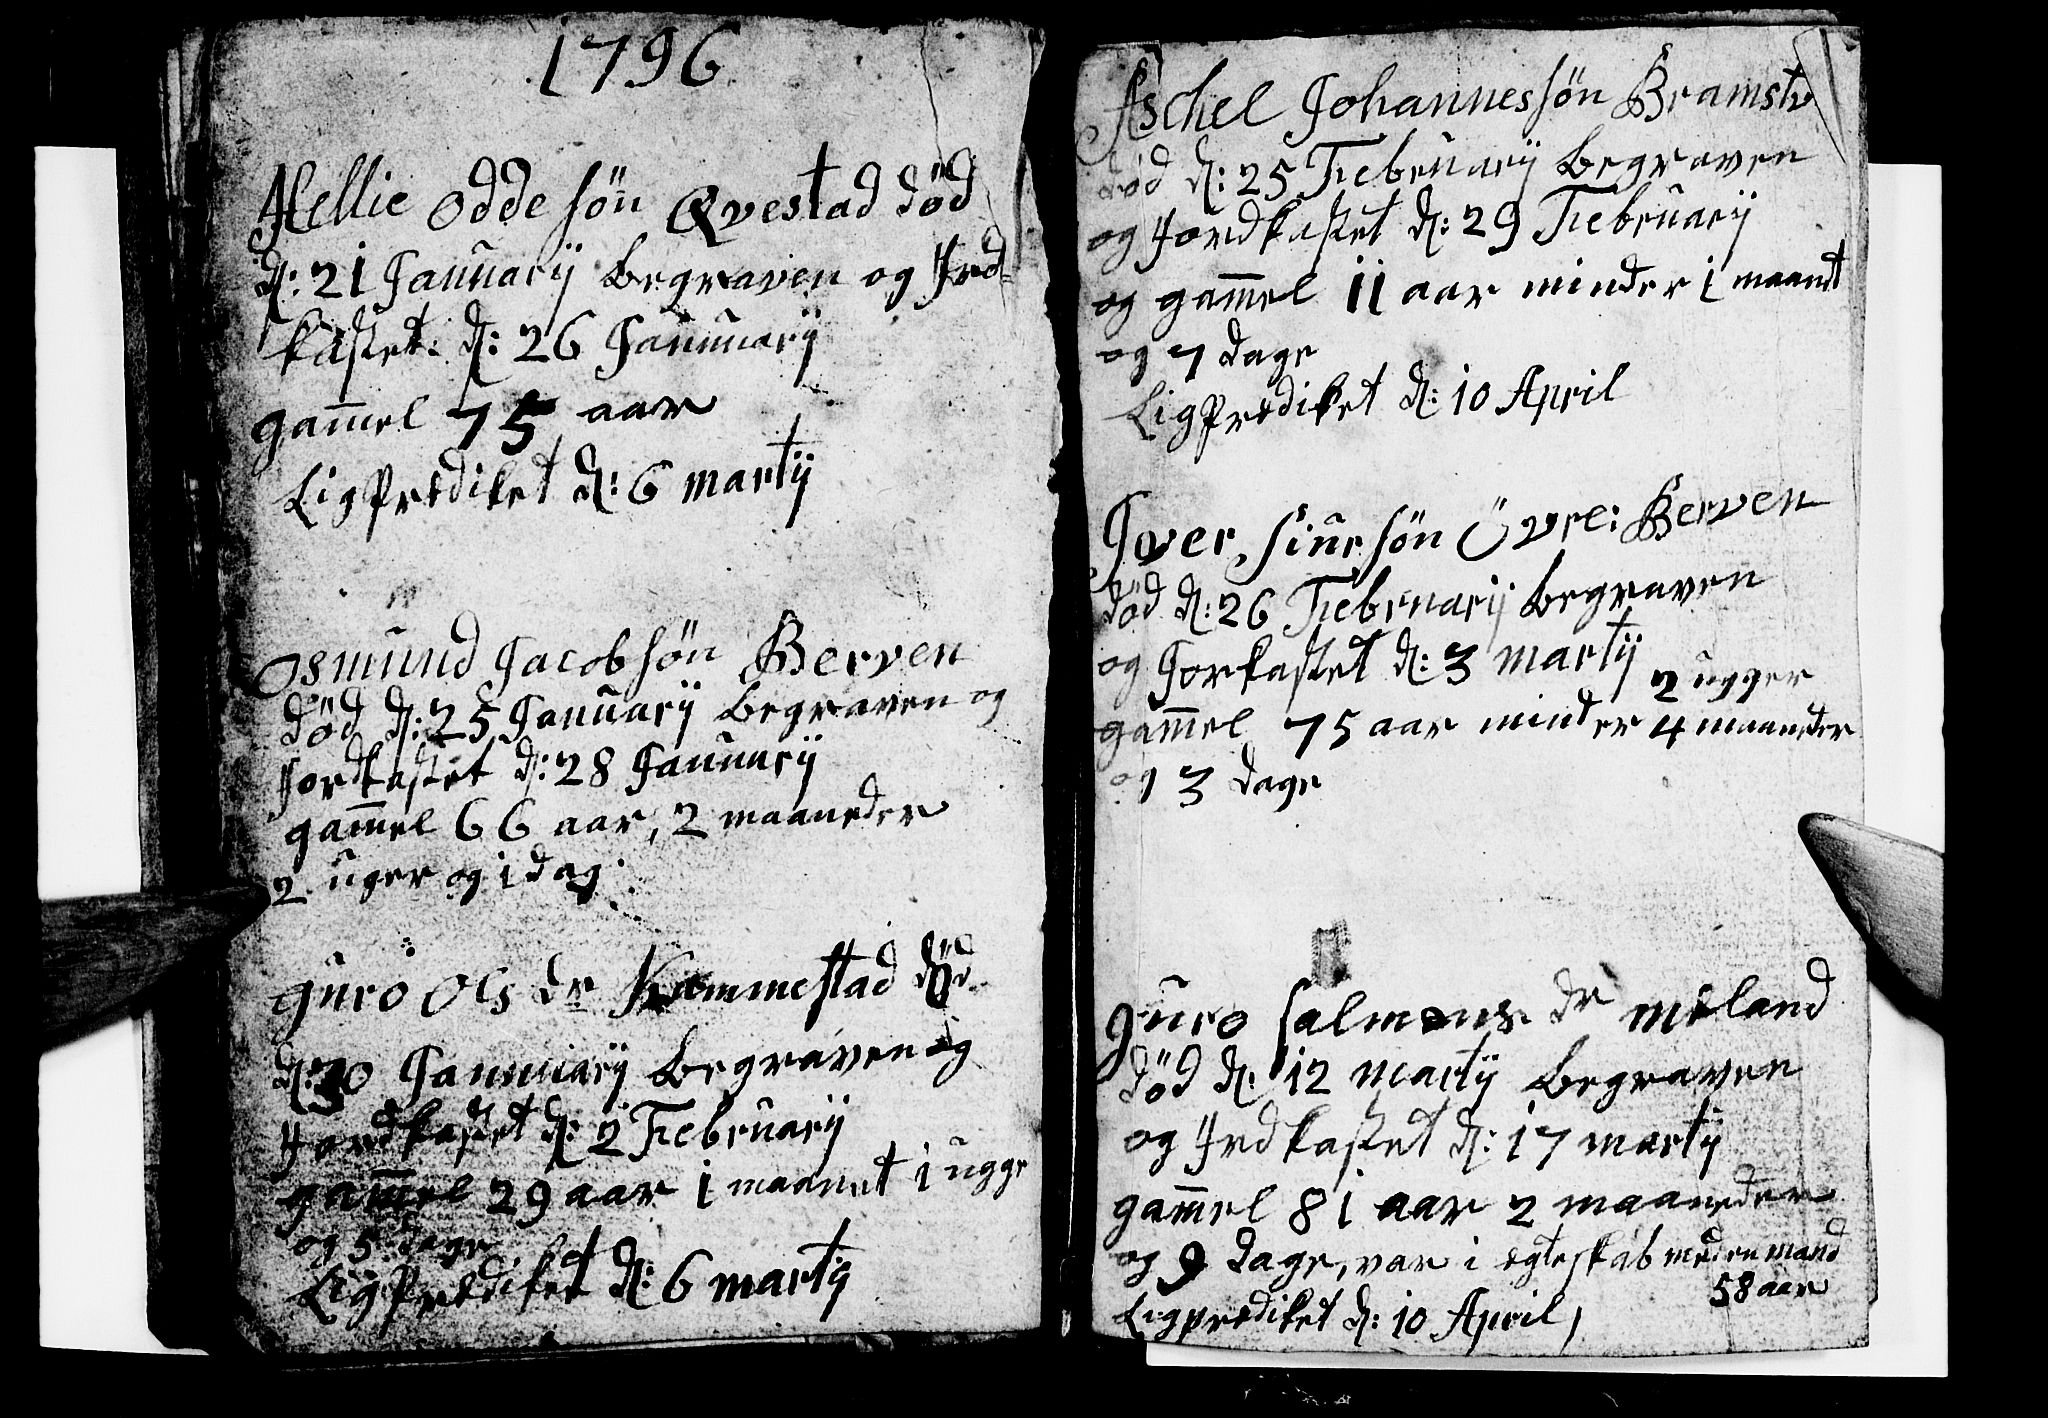 1796
Hellie Oddesön Qvestad död
d: 21 Januarij begraven og Jord=
kastet: d: 26 Januuarij
gam̄el 75 aar
Ligprediket d: 6 martij
Osmund Jacobsön Berven
död d: 25 Januarij begraven og
Jordkastet d: 28 Januuarij
gam̄el 66 aar, 2 maaneder
2 uger og 1 dag.
guro Ols dr Kammestad död
d: 30 Januuarij begraven og
Jordkastet d: 2 Februarij
gam̄el 29 aar 1 maanet 1 ugge
og 5 dage
Ligprediket d: 6 martij
Aschel Johannessön Bramstv
död d: 25 Februarij begraven
og Jordkastet d: 29 Februarij
og gam̄el 11 aar minder 1 maant
og 7 dage
Ligprediket d: 10 April
Jver Siursön Övre: Berven
död d: 26 Februarij begraven
og Jorkastet d: 3 martij
2 ugger
gam̄el 75 aar minder 4 maaneder
og 3 dage
guro Salmons dr meland
död d: 12 martij begraven
og Jrdkastet d: 17 martij
gam̄el 81 aar 2 maaneder
og 9 dage, var i egteskab med en mand
58 aar
Ligprediket d: 10 April